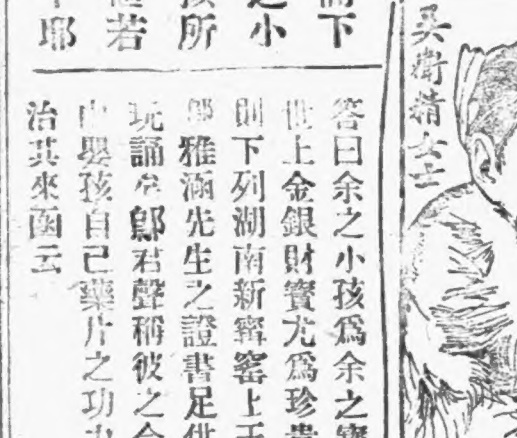 吳衛精女士
下
之小
所
若
耶
答曰余之小孩爲余之寶
世上金銀財寶尤爲珍貴
則下列湖南新寗窑上
雅涵先生之證書足供
玩誦 君聲稱彼之令
嬰孩自己藥片之功
治其來函云